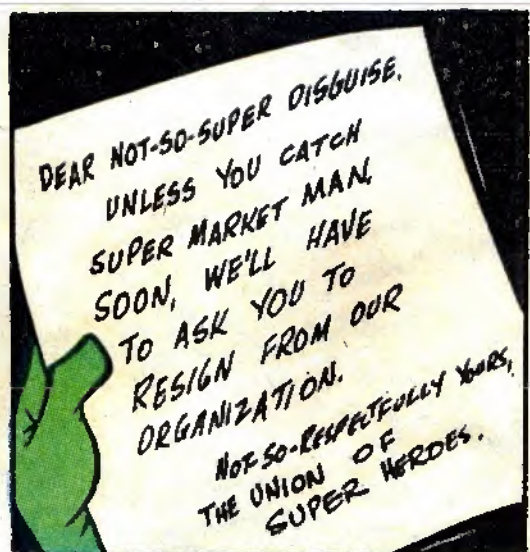 DEAR NOT-SO-SUPER DISGUISE,
UNLESS YOU CATCH
SUPER MARKET MAN,
SOON, WE'LL HAVE
TO ASK YOU TO
RESIGN FROM OUR
ORGANIZATION.
NOT-SO-RESPECTFULLY YOURS,
THE UNION OF
SUPER HEROES.